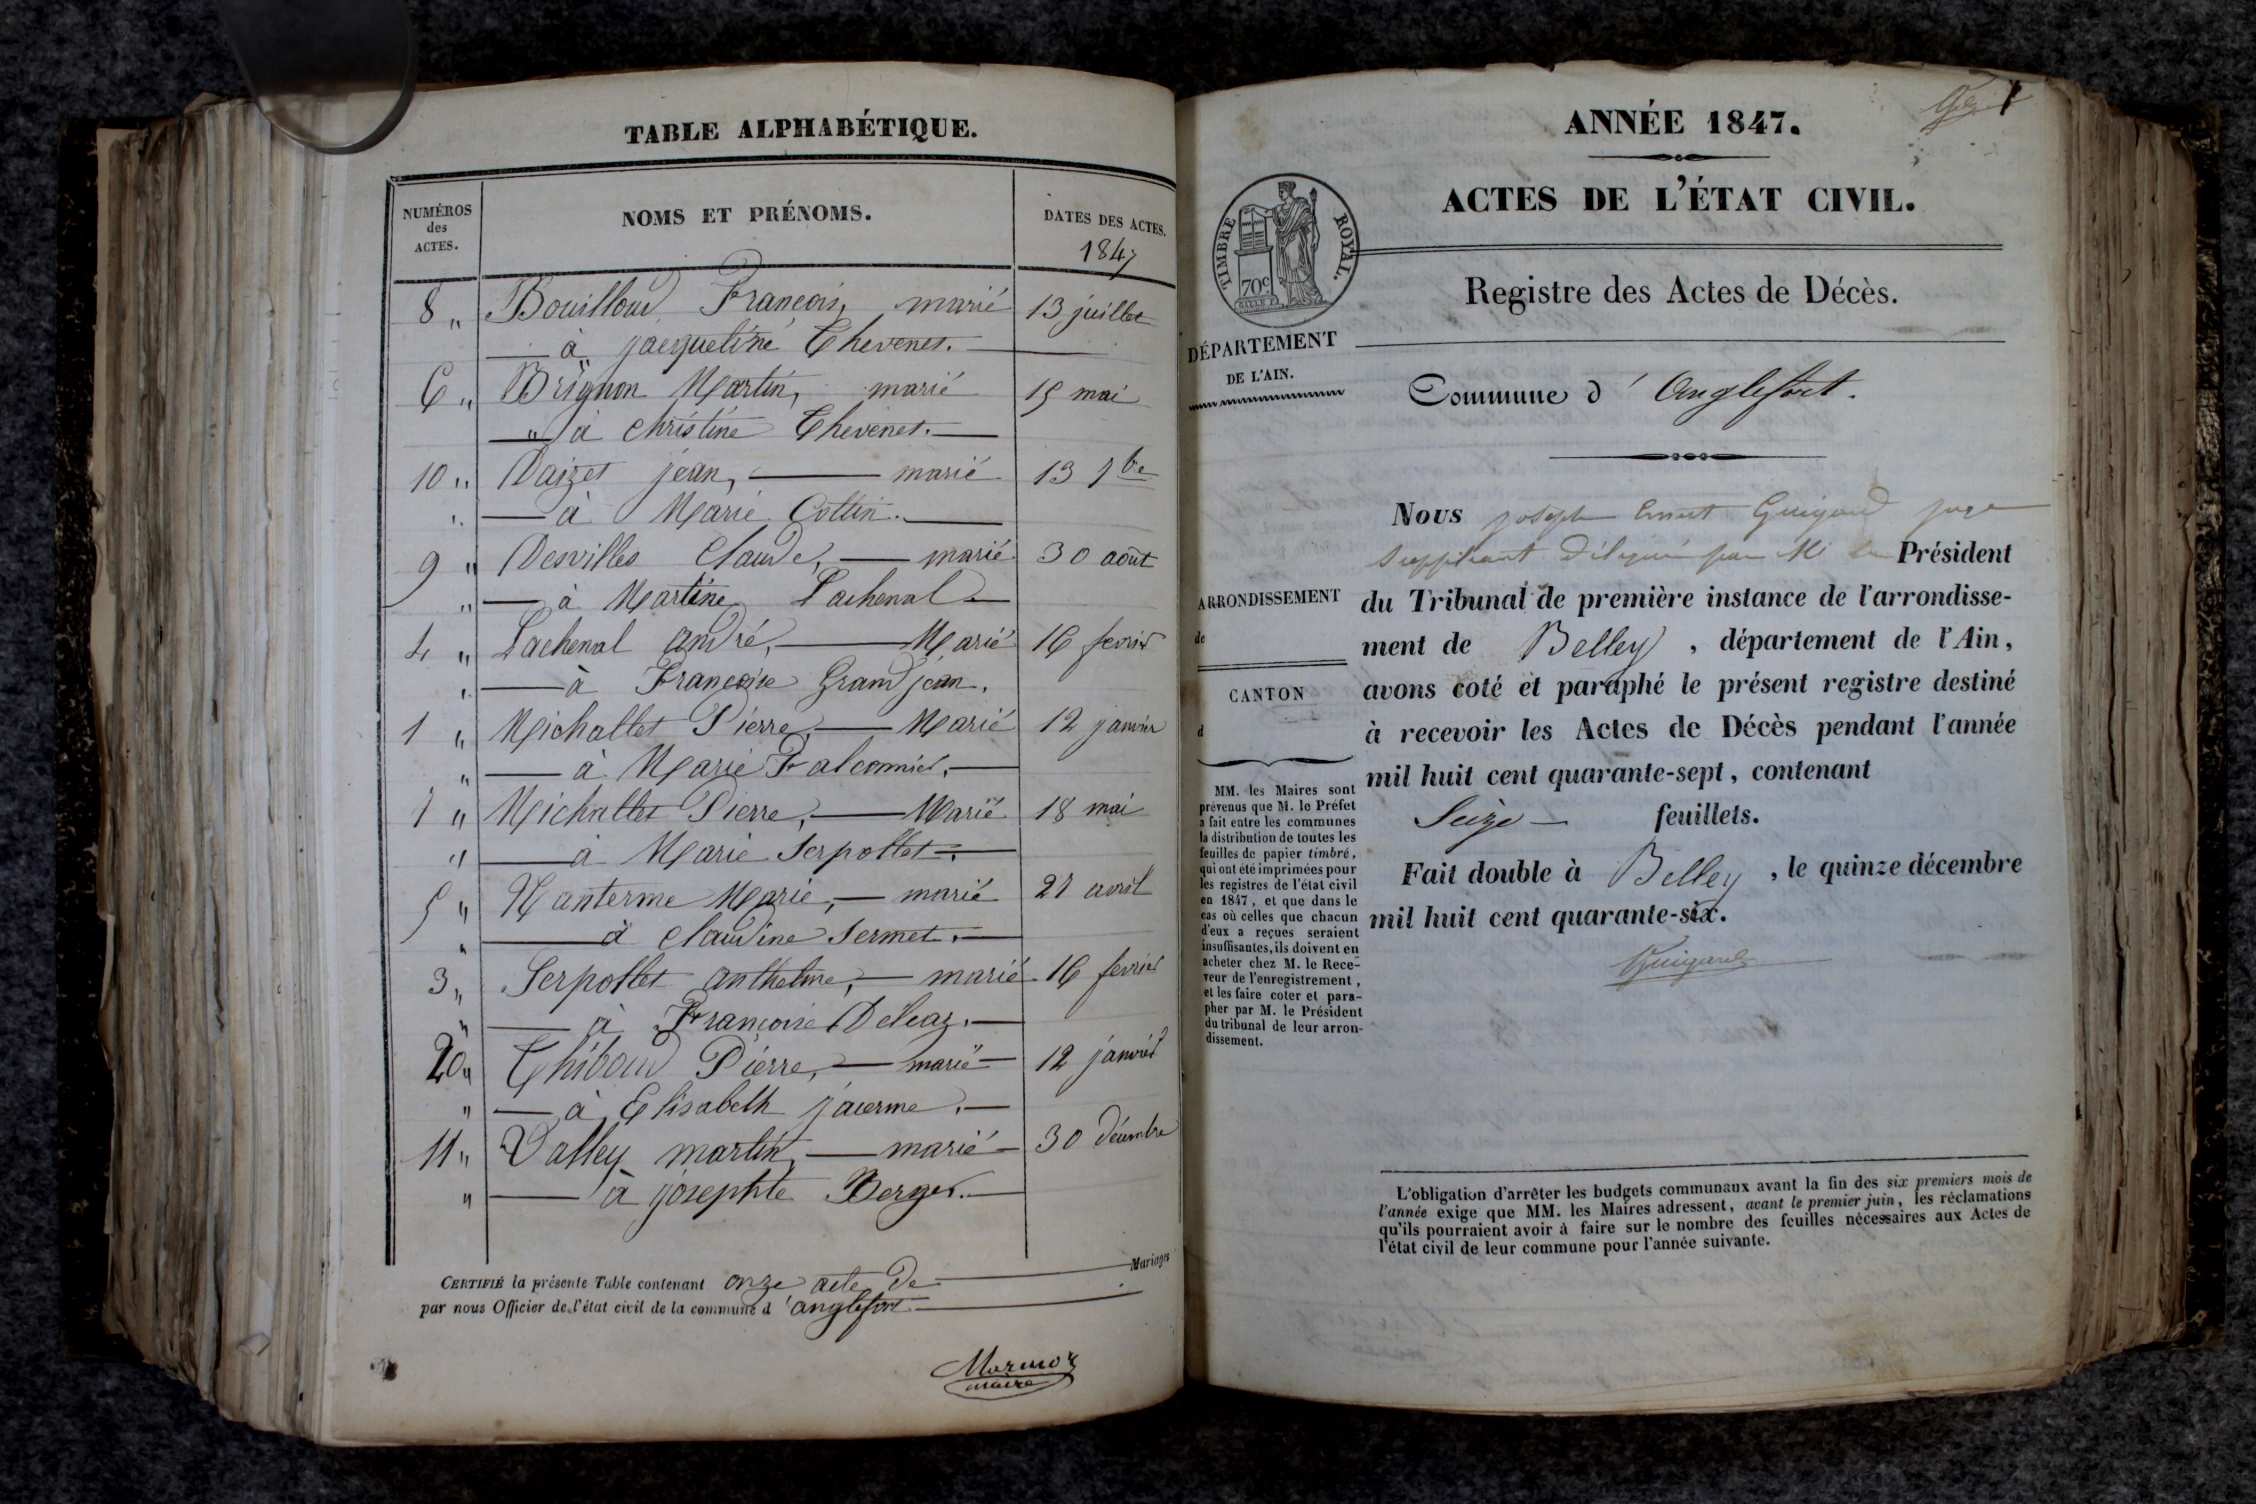 TABLE ALPHABÉTIQUE.
NUMÉROS des ACTES.
NOMS ET PRÉNOMS.
DATES DES ACTES.
1847
8 " Bouilloud François, marié 13 juillet
à jacqueline Thevenet.
6 " Brignon Martin, marié 15 mai
" à christine Thevenet.
10 " Daizet jean, marié 13 7bre
" à Marie Collin.
9 " Desvilles Claude, marié 30 août
" à Martine Lachenal
4 " Lachenal andré, Marié 16 fevrier
" à Françoise Grandjean.
1 " Michallet Pierre, Marié 12 janvier
" à Marie Falconnier.
7 " Michallet Pierre, Marié 18 mai
" à Marie Serpollet.
5 " Nanterme Marie, marié 27 avril
" à claudine Sermet.
3 " Serpollet anthelme, marié 16 fevrier
" à Françoise Deleaz.
2 " Thiboud Pierre, marié 12 janvier
" à Elisabeth jacerme.
11 " Valley martin, marié 30 décembre
" à josephte Berger.
CERTIFIÉ la présente Table contenant onze acte de Mariages
par nous Officier de l'état civil de la commune d'anglefort
maire
ANNÉE 1847.
ACTES DE L'ÉTAT CIVIL.
TIMBRE ROYAL.
70c
Registre des Actes de Décès.
DÉPARTEMENT
DE L'AIN.
Commune d'Anglefort.
Nous joseph Ernest Guigard juge
suppléant délégué par Mr le Président
ARRONDISSEMENT
de
du Tribunal de première instance de l'arrondisse-
ment de Belley, département de l'Ain,
CANTON
d
avons coté et paraphé le présent registre destiné
à recevoir les Actes de Décès pendant l'année
mil huit cent quarante-sept, contenant
Seize feuillets.
Fait double à Belley, le quinze décembre
mil huit cent quarante-six.
Guigard
MM. les Maires sont
prévenus que M. le Préfet
a fait entre les communes
la distribution de toutes les
feuilles de papier timbré,
qui ont été imprimées pour
les registres de l'état civil
en 1847, et que dans le
cas où celles que chacun
d'eux a reçues seraient
insuffisantes, ils doivent en
acheter chez M. le Rece-
veur de l'enregistrement,
et les faire coter et para-
pher par M. le Président
du tribunal de leur arron-
dissement.
L'obligation d'arrêter les budgets communaux avant la fin des six premiers mois de
l'année exige que MM. les Maires adressent, avant le premier juin, les réclamations
qu'ils pourraient avoir à faire sur le nombre des feuilles nécessaires aux Actes de
l'état civil de leur commune pour l'année suivante.